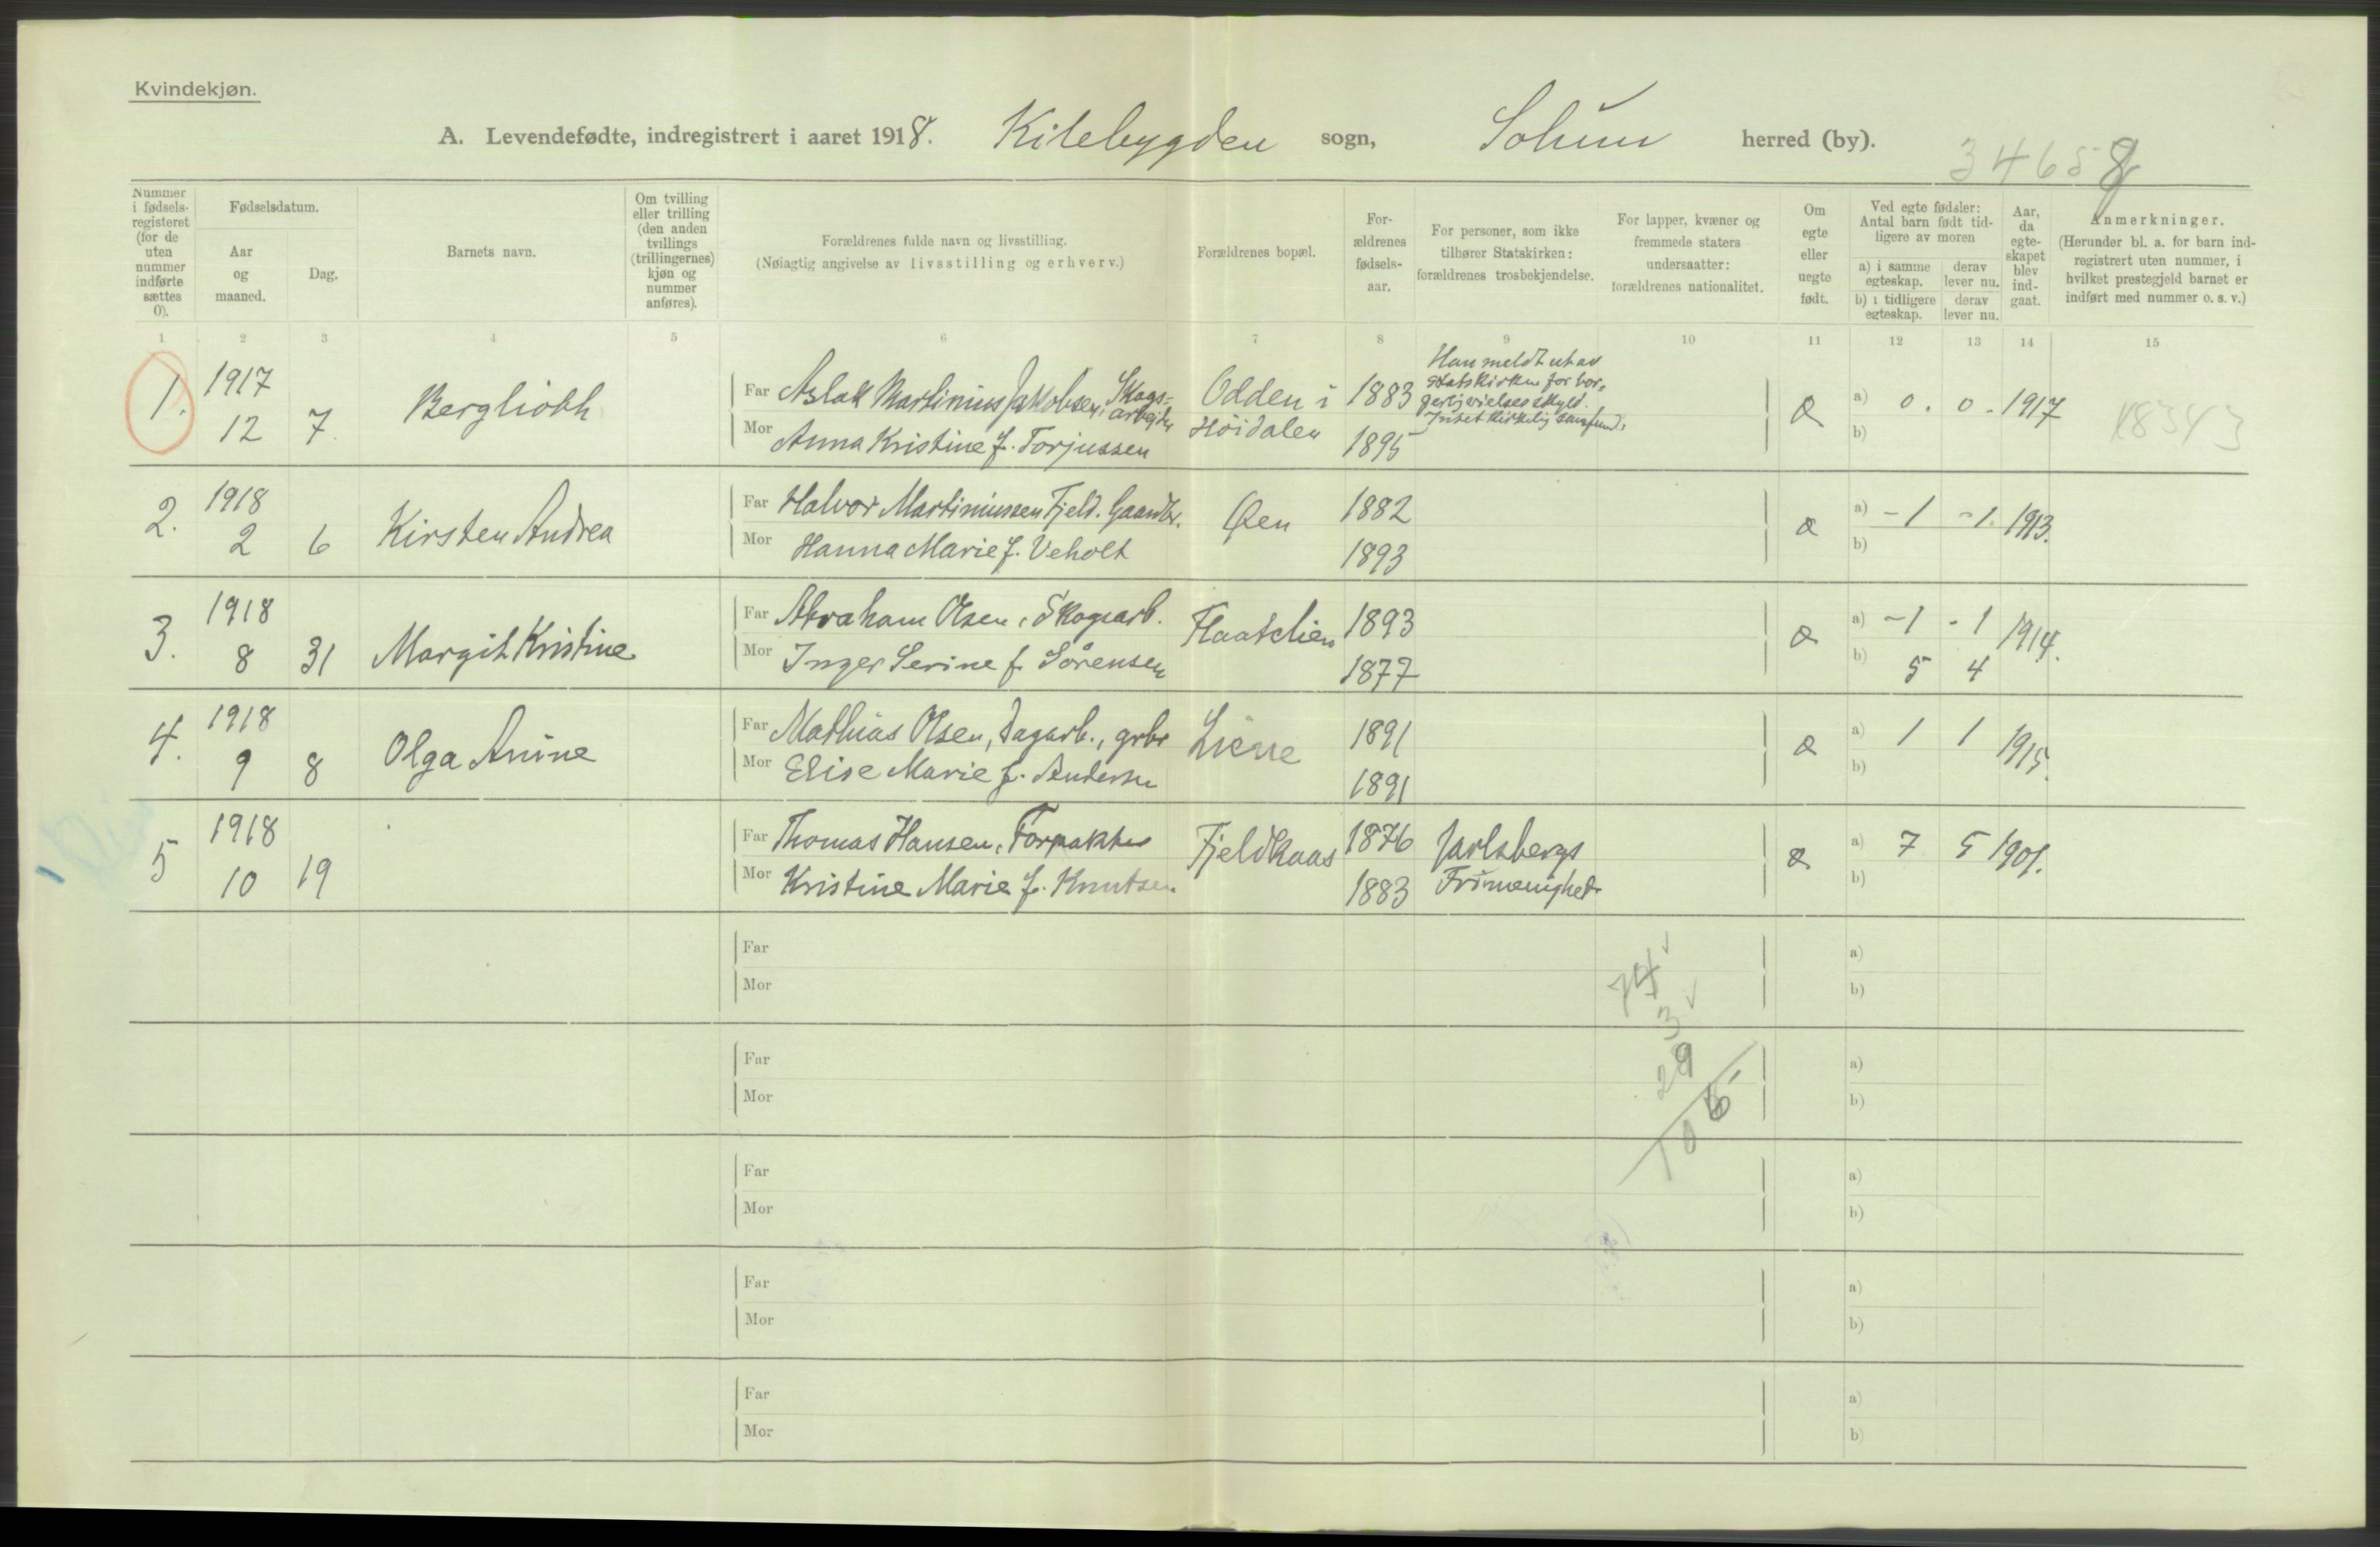 Kvindekjøn.
A. Levendefødte, indregistrert i aaret 1918. Kilebygden sogn, Solum herred (by).
34658
Nummer i fødsels-registeret (for de uten nummer indførte sættes 0).
Fødselsdatum.
Aar og maaned.
Dag.
Barnets navn.
Om tvilling eller trilling (den anden tvillings (trillingernes) kjøn og nummer anføres).
Forældrenes fulde navn og livsstilling.
(Nøiagtig angivelse av livsstilling og erhverv.)
Forældrenes bopæl.
For-ældrenes fødsels-aar.
For personer, som ikke tilhører Statskirken: forældrenes trosbekjendelse.
For lapper, kvæner og fremmede staters undersaatter: forældrenes nationalitet.
Om egte eller uegte født.
Ved egte fødsler: Antal barn født tid-ligere av moren
a) i samme egteskap. derav lever nu.
b) i tidligere egteskap. derav lever nu.
Aar, da egte-skapet blev ind-gaat.
Anmerkninger.
(Herunder bl. a. for barn ind-registrert uten nummer, i hvilket prestegjeld barnet er indført med nummer o. s. v.)
1 2 3 4 5 6 7 8 9 10 11 12 13 14 15
1. 1917 12 7 Bergliøth
Far Aslak Martinius Jakobsen, Skogs-arbeider
Mor Anna Kristine f. Torjussen
Odden i Höidalen
1883
1895
Han meldt ut av
statskirken for bor-
gerlig vielses skyld.
Intet kirkelig samfund.
a) 0. 0. 1917
b)
18343
2. 1918 2 6 Kirsten Andrea
Far Halvor Martiniussen Fjeld. Gaardbr.
Mor Hanna Marie f. Veholt
Øen
1882
1893
a) -1 -1. 1913.
b)
3. 1918 8 31 Margit Kristine
Far Abraham Olsen, Skogsarb.
Mor Inger Serine f. Sörensen
Flaatelien
1893
1877
a) -1 -1 1914.
b) 5 4
4. 1918 9 8 Olga Anine
Far Mathias Olsen, Dagarb., grbr
Mor Elise Marie f. Andersen
1891
1891
a) 1 1 1915.
b)
5 1918 10 19
Far Thomas Hansen, Forpakter
Mor Kristine Marie f. Knutsen.
Fjeldkaas
1876
1883
Jarlsbergs
Frimenighed.
a) 7 5 1901.
b)
Far
Mor
a)
b)
74
3
29
106
Far
Mor
a)
b)
Far
Mor
a)
b)
Far
Mor
a)
b)
Far
Mor
a)
b)